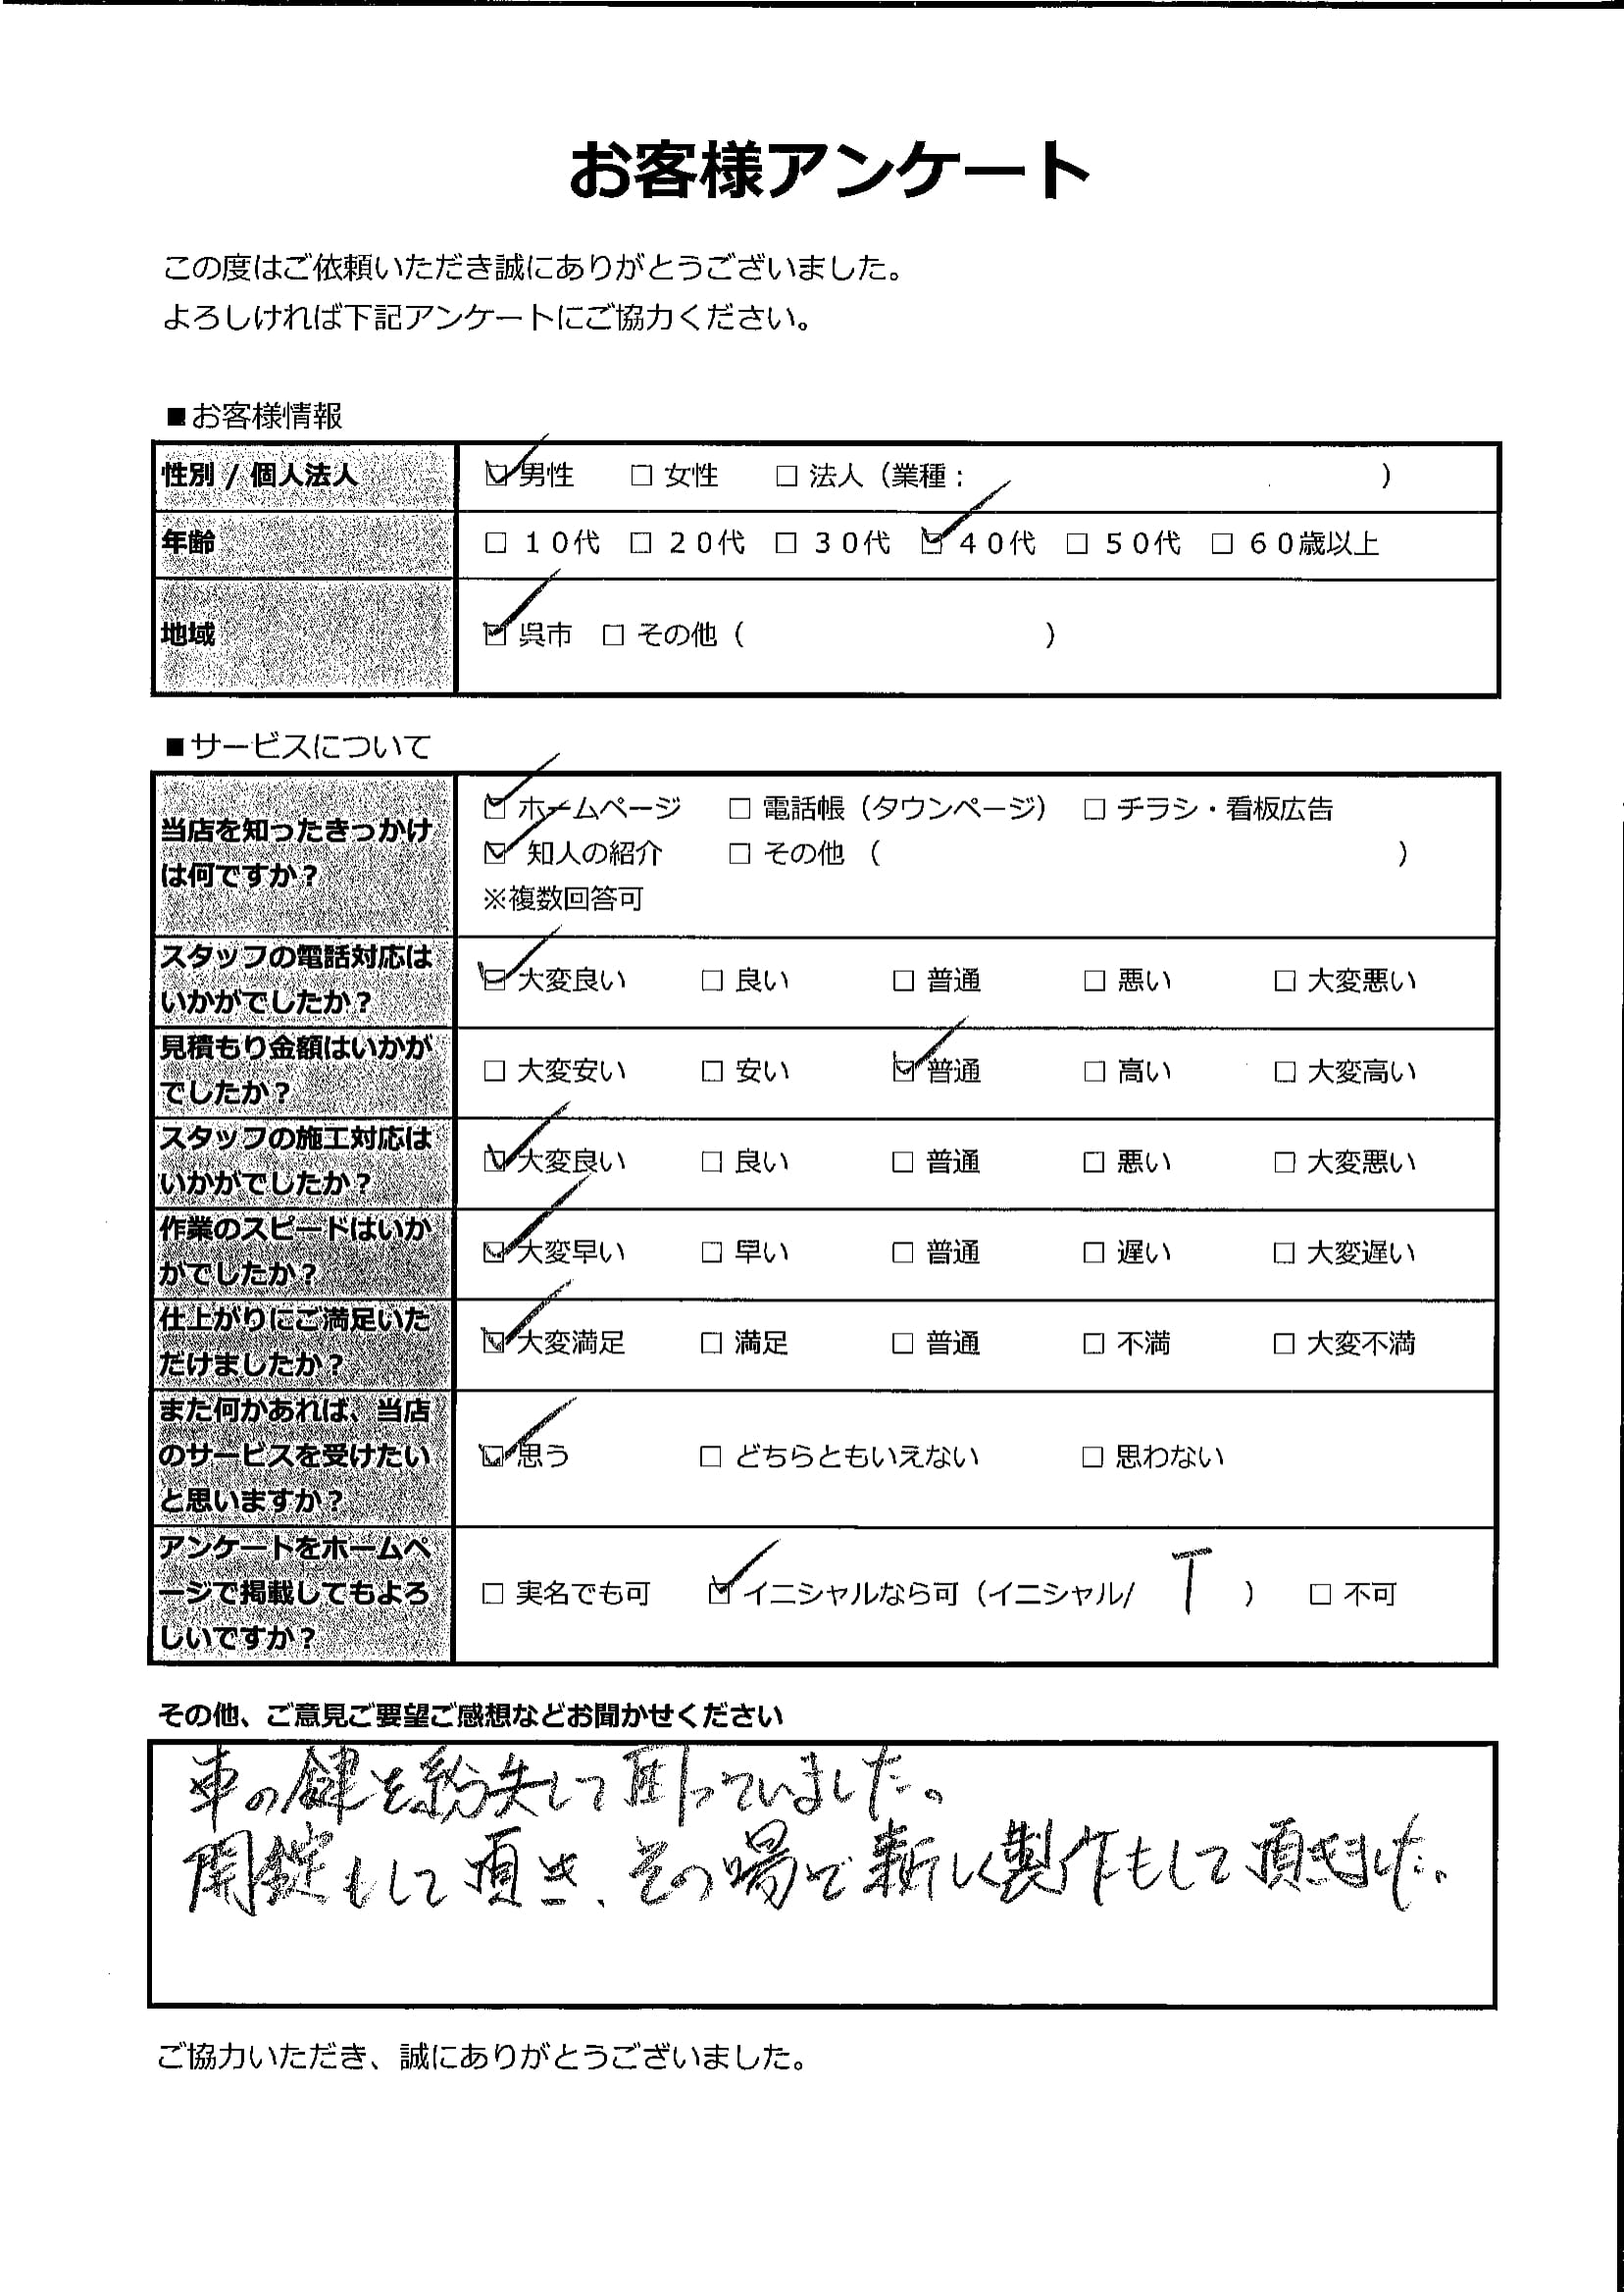 お客様アンケート
この度はご依頼いただき誠にありがとうございました。
よろしければ下記アンケートにご協力ください。
■お客様情報
性別 / 個人法人 ☑ 男性 □ 女性 □ 法人（業種： ）
年齢 □ １０代 □ ２０代 □ ３０代 ☑ ４０代 □ ５０代 □ ６０歳以上
地域 ☑ 呉市 □ その他（ ）
■サービスについて
当店を知ったきっかけ
は何ですか？
☑ ホームページ □ 電話帳（タウンページ） □ チラシ・看板広告
☑ 知人の紹介 □ その他 （ ）
※複数回答可
スタッフの電話対応は
いかがでしたか？
☑ 大変良い □ 良い □ 普通 □ 悪い □ 大変悪い
見積もり金額はいかが
でしたか？
□ 大変安い □ 安い ☑ 普通 □ 高い □ 大変高い
スタッフの施工対応は
いかがでしたか？
☑ 大変良い □ 良い □ 普通 □ 悪い □ 大変悪い
作業のスピードはいか
がでしたか？
☑ 大変早い □ 早い □ 普通 □ 遅い □ 大変遅い
仕上がりにご満足いた
だけましたか？
☑ 大変満足 □ 満足 □ 普通 □ 不満 □ 大変不満
また何かあれば、当店
のサービスを受けたい
と思いますか？
☑ 思う □ どちらともいえない □ 思わない
アンケートをホームペ
ージで掲載してもよろ
しいですか？
□ 実名でも可 ☑ イニシャルなら可（イニシャル/ T ） □ 不可
その他、ご意見ご要望ご感想などお聞かせください
車の鍵を紛失して困っていました。
開錠もして頂き、その場で新しく製作もして頂きました。
ご協力いただき、誠にありがとうございました。